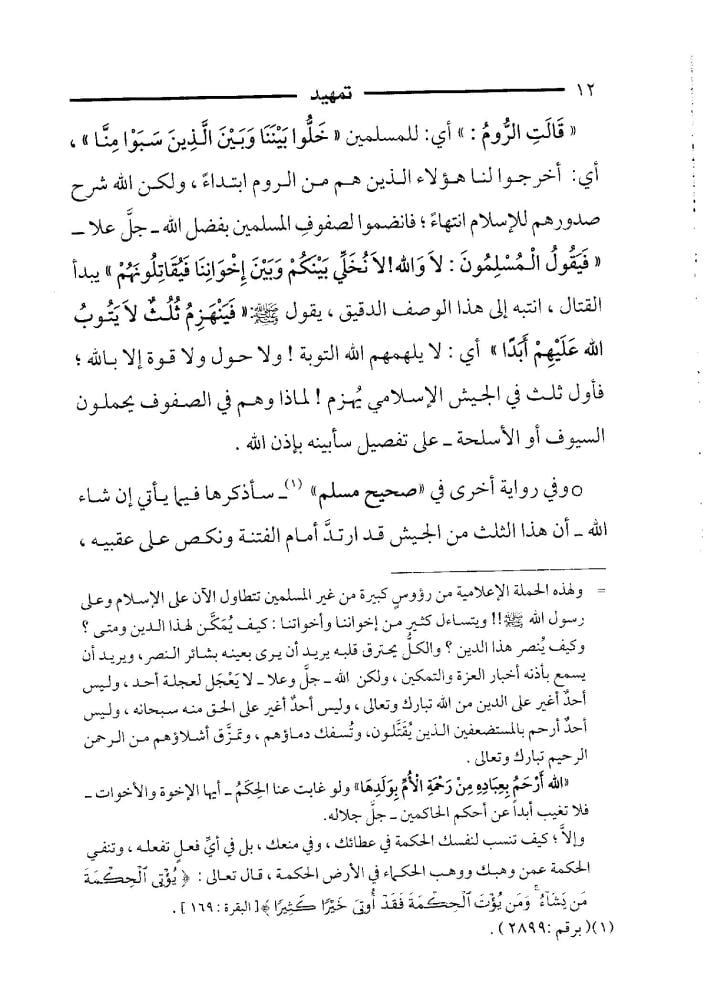 ١٢ تمهيد
« قَالَتِ الرُّومُ : » أي: للمسلمين « خَلُّوا بَيْنَنَا وَبَيْنَ الَّذِينَ سَبَوْا مِنَّا » ،
أي: أخرجوا لنا هؤلاء الذين هم من الروم ابتداءً ، ولكن الله شرح
صدورهم للإسلام انتهاءً ؛ فانضموا لصفوفِ المسلمين بفضل الله ـ جلَّ علا ـ
« فَيَقُولُ الْمُسْلِمُونَ : لاَ وَالله! لاَ نُخَلِّي بَيْنَكُمْ وَبَيْنَ إِخْوَانِنَا فَيُقَاتِلُونَهُمْ » يبدأ
القتال ، انتبه إلى هذا الوصف الدقيق ، يقول ﷺ: « فَيَنْهَزِمُ ثُلُثٌ لاَ يَتُوبُ
الله عَلَيْهِمْ أَبَدًا » أي : لا يلهمهم الله التوبة ! ولا حول ولا قوة إلا بالله ؛
فأول ثلث في الجيش الإسلامي يُهزم ! لماذا وهم في الصفوف يحملون
السيوف أو الأسلحة ـ على تفصيل سأبينه بإذن الله .
○ وفي رواية أخرى في «صحيح مسلم» (١) ـ سأذكرها فيما يأتي إن شاء
الله ـ أن هذا الثلث من الجيش قد ارتدَّ أمام الفتنة ونكص على عقبيه ،
= ولهذه الحملة الإعلامية من رؤوسٍ كبيرة من غير المسلمين تتطاول الآن على الإسلام وعلى
رسول الله ﷺ!! ويتساءل كثير من إخواننا وأخواتنا : كيف يُمَكَّن لهذا الدين ومتى ؟
وكيف يُنصر هذا الدين ؟ والكلُّ يحترق قلبه يريد أن يرى بعينه بشائر النصر، ويريد أن
يسمع بأذنه أخبار العزة والتمكين ، ولكن الله ـ جلَّ وعلا ـ لا يَعْجَل لعجلة أحد ، وليس
أحدٌ أغير على الدين من الله تبارك وتعالى ، وليس أحدٌ أغير على الحق منه سبحانه ، وليس
أحدٌ أرحم بالمستضعفين الذين يُقَتَّلون، وتُسفك دماؤهم ، وتمزَّق أشلاؤهم من الرحمن
الرحيم تبارك وتعالى .
«الله أَرْحَمُ بِعِبَادِهِ مِنْ رَحْمَةِ الْأُمِّ بِوَلَدِهَا» ولو غابت عنا الحِكَمُ ـ أيها الإخوة والأخوات ـ
فلا تغيب أبداً عن أحكم الحاكمين ـ جلَّ جلاله.
وإلاَّ؛ كيف تنسب لنفسك الحكمة في عطائك ، وفي منعك ، بل في أيِّ فعلٍ تفعله ، وتنفي
الحكمة عمن وهبك ووهب الحكماء في الأرض الحكمة ، قال تعالى : ﴿ يُؤْتِى ٱلْحِكْمَةَ
مَن يَشَآءُ ۚ وَمَن يُؤْتَ ٱلْحِكْمَةَ فَقَدْ أُوتِىَ خَيْرًا كَثِيرًا ﴾ [ البقرة : ١٦٩ ] .
(١)( برقم : ٢٨٩٩) .